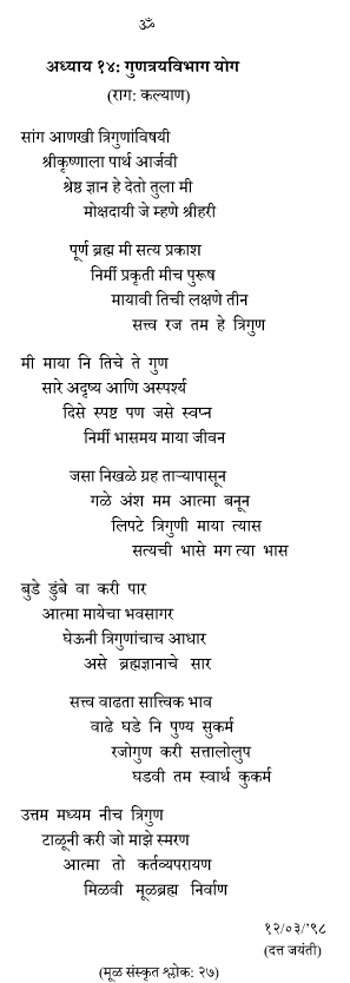 ॐ
अध्याय १४: गुणत्रयविभाग योग
(राग: कल्याण)
सांग आणखी त्रिगुणांविषयी
श्रीकृष्णाला पार्थ आर्जवी
श्रेष्ठ ज्ञान हे देतो तुला मी
मोक्षदायी जे म्हणे श्रीहरी
पूर्ण ब्रह्म मी सत्य प्रकाश
निर्मी प्रकृती मीच पुरूष
मायावी तिची लक्षणे तीन
सत्त्व रज तम हे त्रिगुण
मी माया नि तिचे ते गुण
सारे अदृष्य आणि अस्पर्श्य
दिसे स्पष्ट पण जसे स्वप्न
निर्मी भासमय माया जीवन
जसा निखळे ग्रह ताऱ्यापासून
गळे अंश मम आत्मा बनून
लिपटे त्रिगुणी माया त्यास
सत्यची भासे मग त्या भास
बुडे डुंबे वा करी पार
आत्मा मायेचा भवसागर
घेऊनी त्रिगुणांचाच आधार
असे ब्रह्मज्ञानाचे सार
सत्त्व वाढता सात्त्विक भाव
वाढे घडे नि पुण्य सुकर्म
रजोगुण करी सत्तालोलुप
घडवी तम स्वार्थ कुकर्म
उत्तम मध्यम नीच त्रिगुण
टाळूनी करी जो माझे स्मरण
आत्मा तो कर्तव्यपरायण
मिळवी मूळब्रह्म निर्वाण
१२/०३/'९८
(दत्त जयंती)
(मूळ संस्कृत श्लोक: २७)